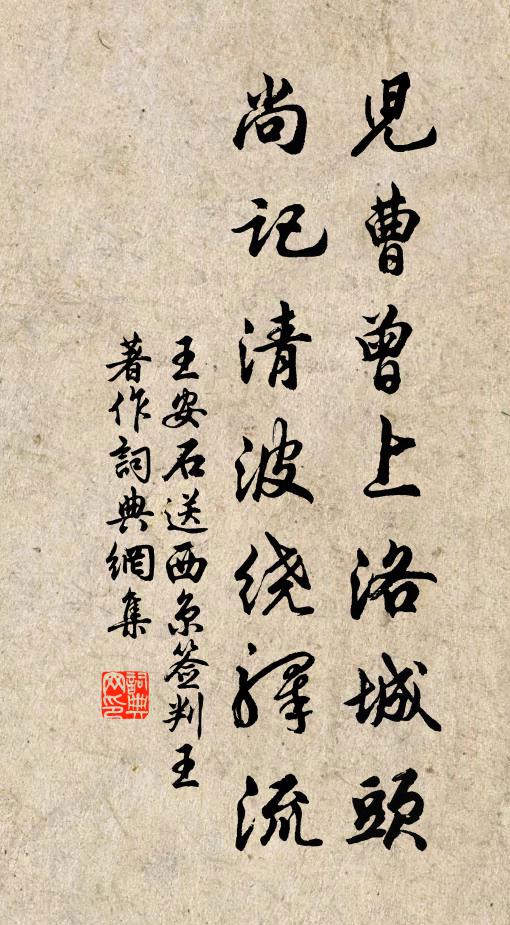 児曹曾上洛城頭
尚记清波绕驛流
王安石送西京签判王
著作詞典網集
詞典网印